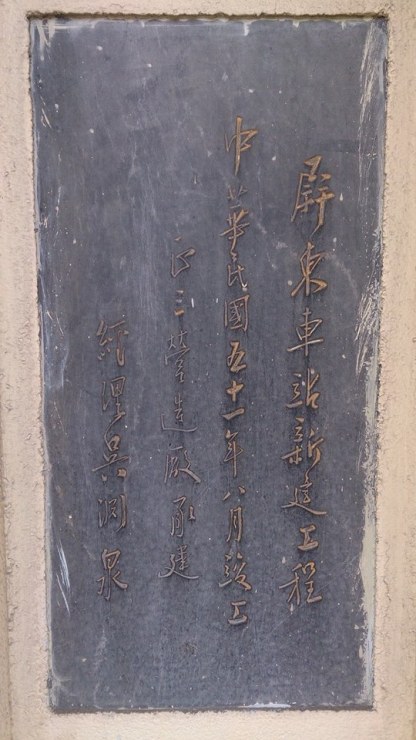 屏東車站新建工程
中華民國五十一年八月竣工
正三營造廠承建
經理吳淵泉